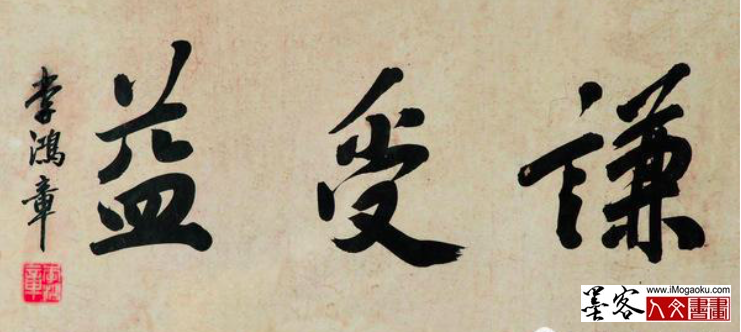 謙受益
李鴻章
墨客
www.iMogaoku.com
人文書畫